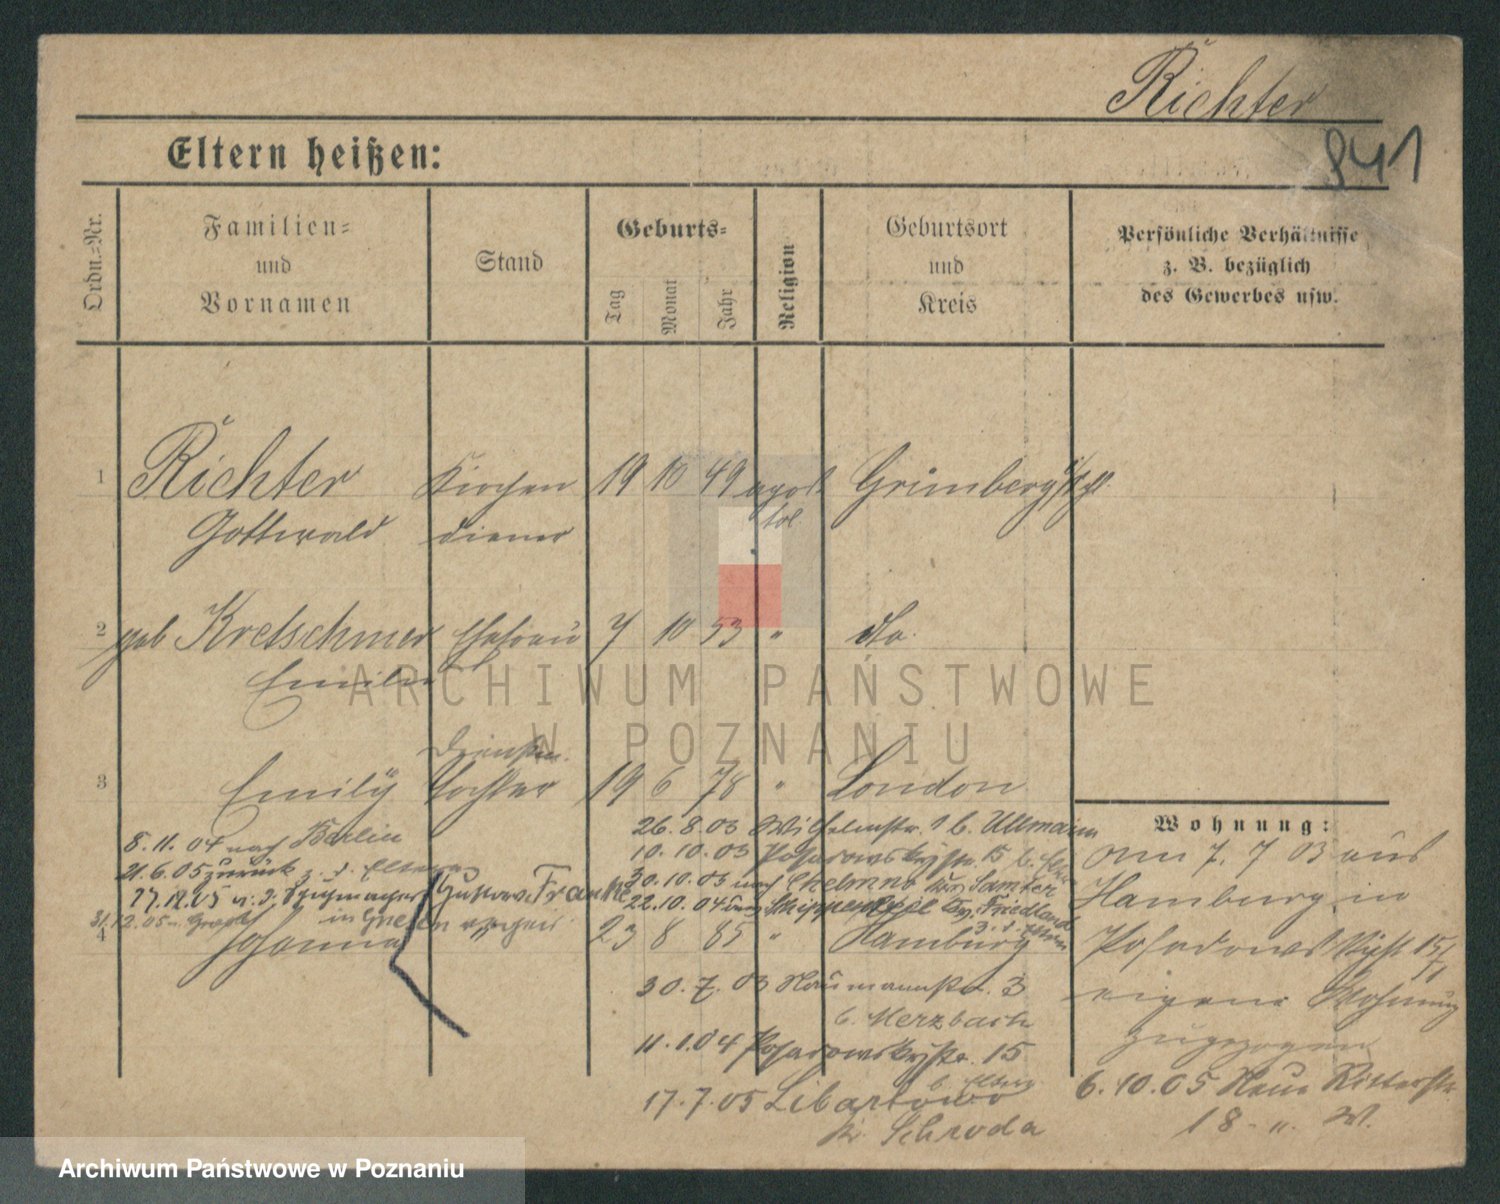 Richter
841
Eltern heißen:
Ordn.=Nr.
Familien=
und
Vornamen
Stand
Geburts=
Tag
Monat
Jahr
Religion
Geburtsort
und
Kreis
Persönliche Verhältnisse
z. B. bezüglich
des Gewerbes usw.
1 Richter Kirchen 19 10 49 apost Grimberg
Gottwald diener tol.
2 geb Kretschmer Ehefrau 7 10 53 " dto.
Emilie
3 Emily Tochter 19 6 78 " London
8.11.04 nach Berlin
21.6.05 zurück z. d. Eltern
27.12.05 Gustav Franke
31.12.05 in Gnesen
4 Johanna " 23 8 85 " Hamburg
26.8.03 Wilhelmstr. 1 b. Ullmann
10.10.03 Posadowskystr. 15 b. Eltern
30.10.03 nach Chelmno Krs Samter
22.10.04 Schippenbeil Friedland
30.7.03 Naumannstr. 3
b. Merzbach
11.1.04 Posadowskystr. 15
b. Eltern
17.7.05 Libartowo
Kr. Schroda
Wohnung:
am 7.7 03 aus
Hamburg in
Posadowskystr 15/
eigene Wohnung
zugezogen
6.10.05 Neue Ritterstr
18 - " W.
ARCHIWUM PAŃSTWOWE
W POZNANIU
Archiwum Państwowe w Poznaniu